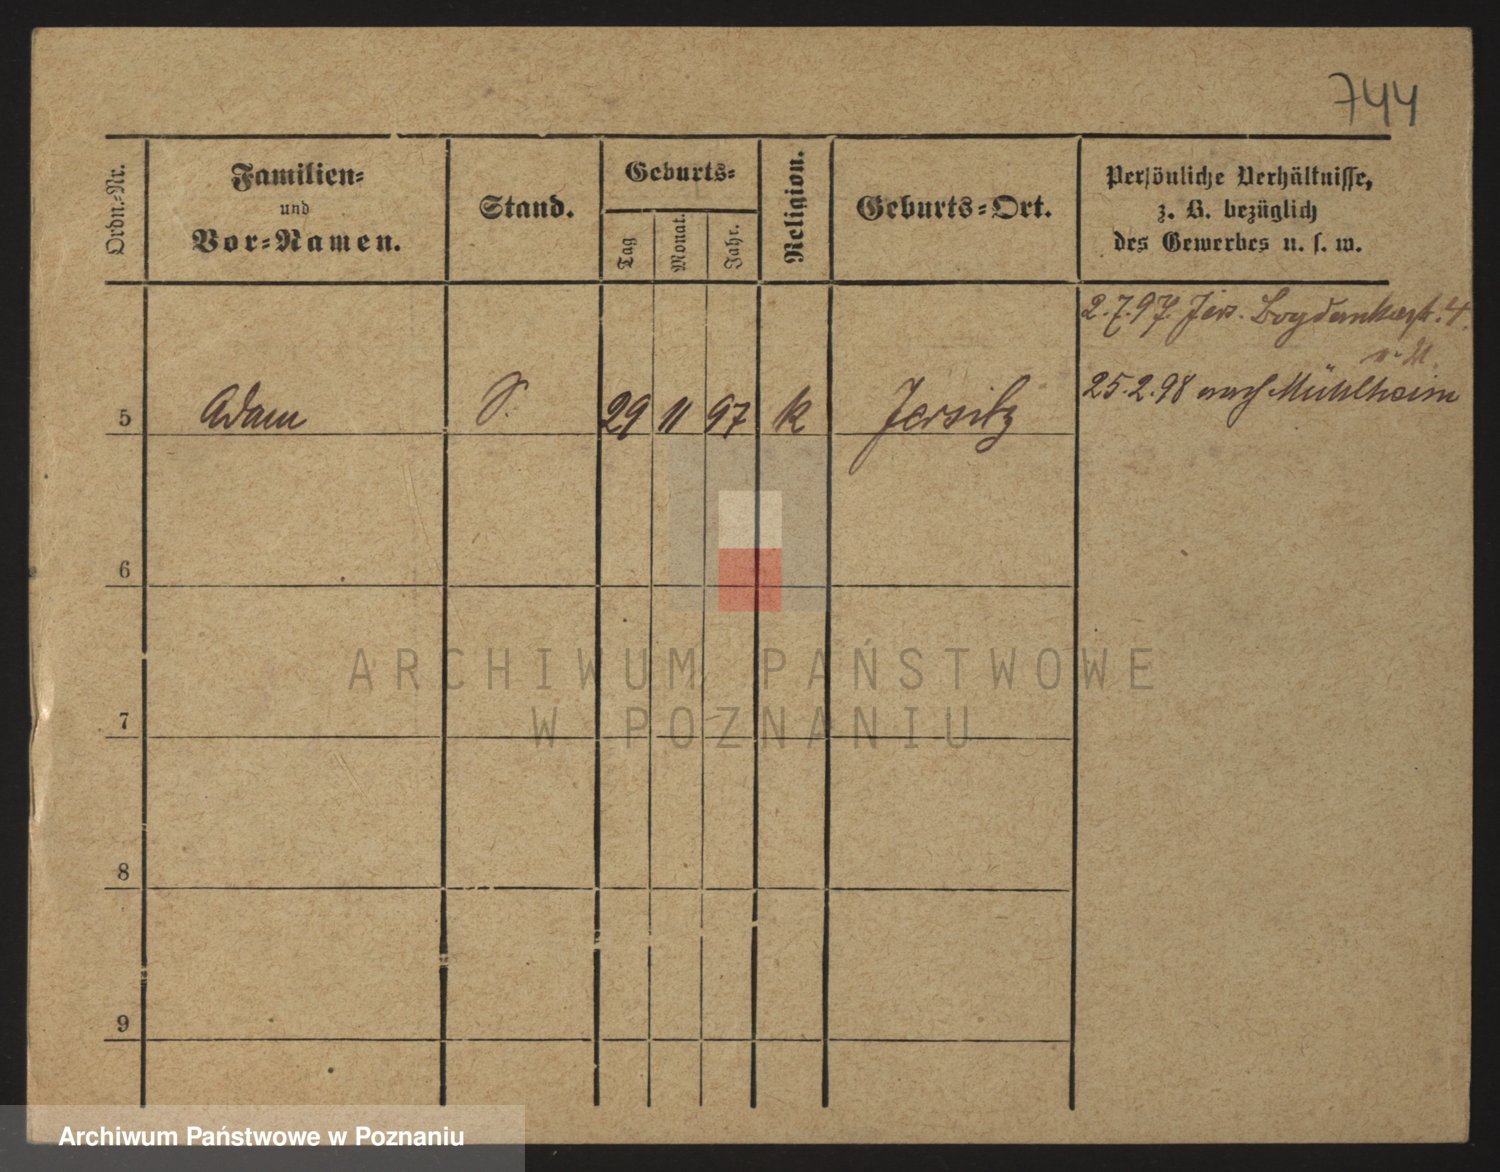 744
Ordn.-Nr.
Familien-
und
Vor-Namen.
Stand.
Geburts-
Tag
Monat.
Jahr.
Religion.
Geburts-Ort.
Persönliche Verhältnisse,
z. B. bezüglich
des Gewerbes u. s. w.
2.7.97. Jers. Bogdankastr. 4.
25.2.98 nach Mühlheim
5 Adam S. 29 11 97 k Jersitz
6
7
8
9
ARCHIWUM PAŃSTWOWE
W POZNANIU
Archiwum Państwowe w Poznaniu